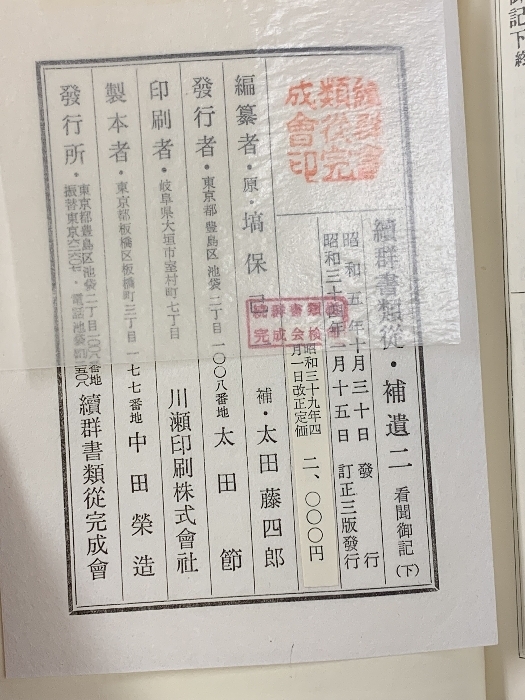 續群書類從・補遺二 看聞御記(下)
昭和五年十月三十日 發行
昭和三十四年二月十五日 訂正三版發行
昭和三十九年四月一日改正定価
二、〇〇〇円
編纂者・原・塙保己一
補・太田藤四郎
發行者・東京都豊島区池袋二丁目一〇〇八番地 太田節
印刷者・岐阜県大垣市室村町七丁目 川瀬印刷株式會社
製本者・東京都板橋区板橋町三丁目一七七番地 中田榮造
發行所・東京都豊島区池袋二丁目一〇〇八番地
續群書類從完成會
續群書
類從完
成會印